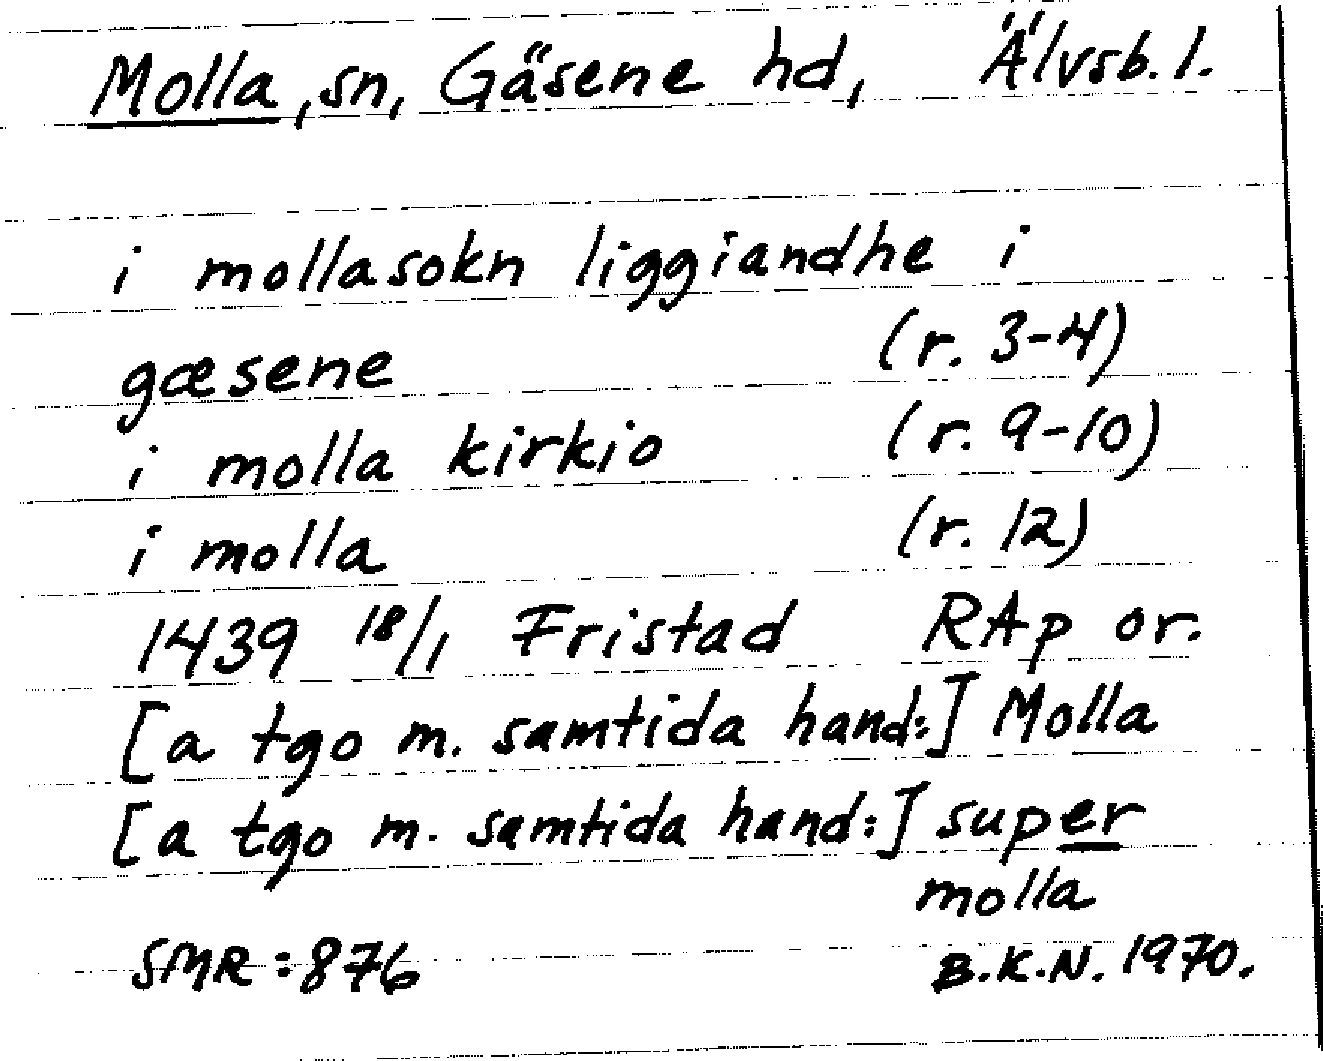 Molla, sn, Gäsene hd, Älvsb. l.
i mollasokn liggiandhe i
gæsene (r. 3-4)
i molla kirkio (r. 9-10)
i molla (r. 12)
1439 18/1 Fristad RAp or.
[a tgo m. samtida hand:] Molla
[a tgo m. samtida hand:] super
molla
SMR:876 B.K.N. 1970.